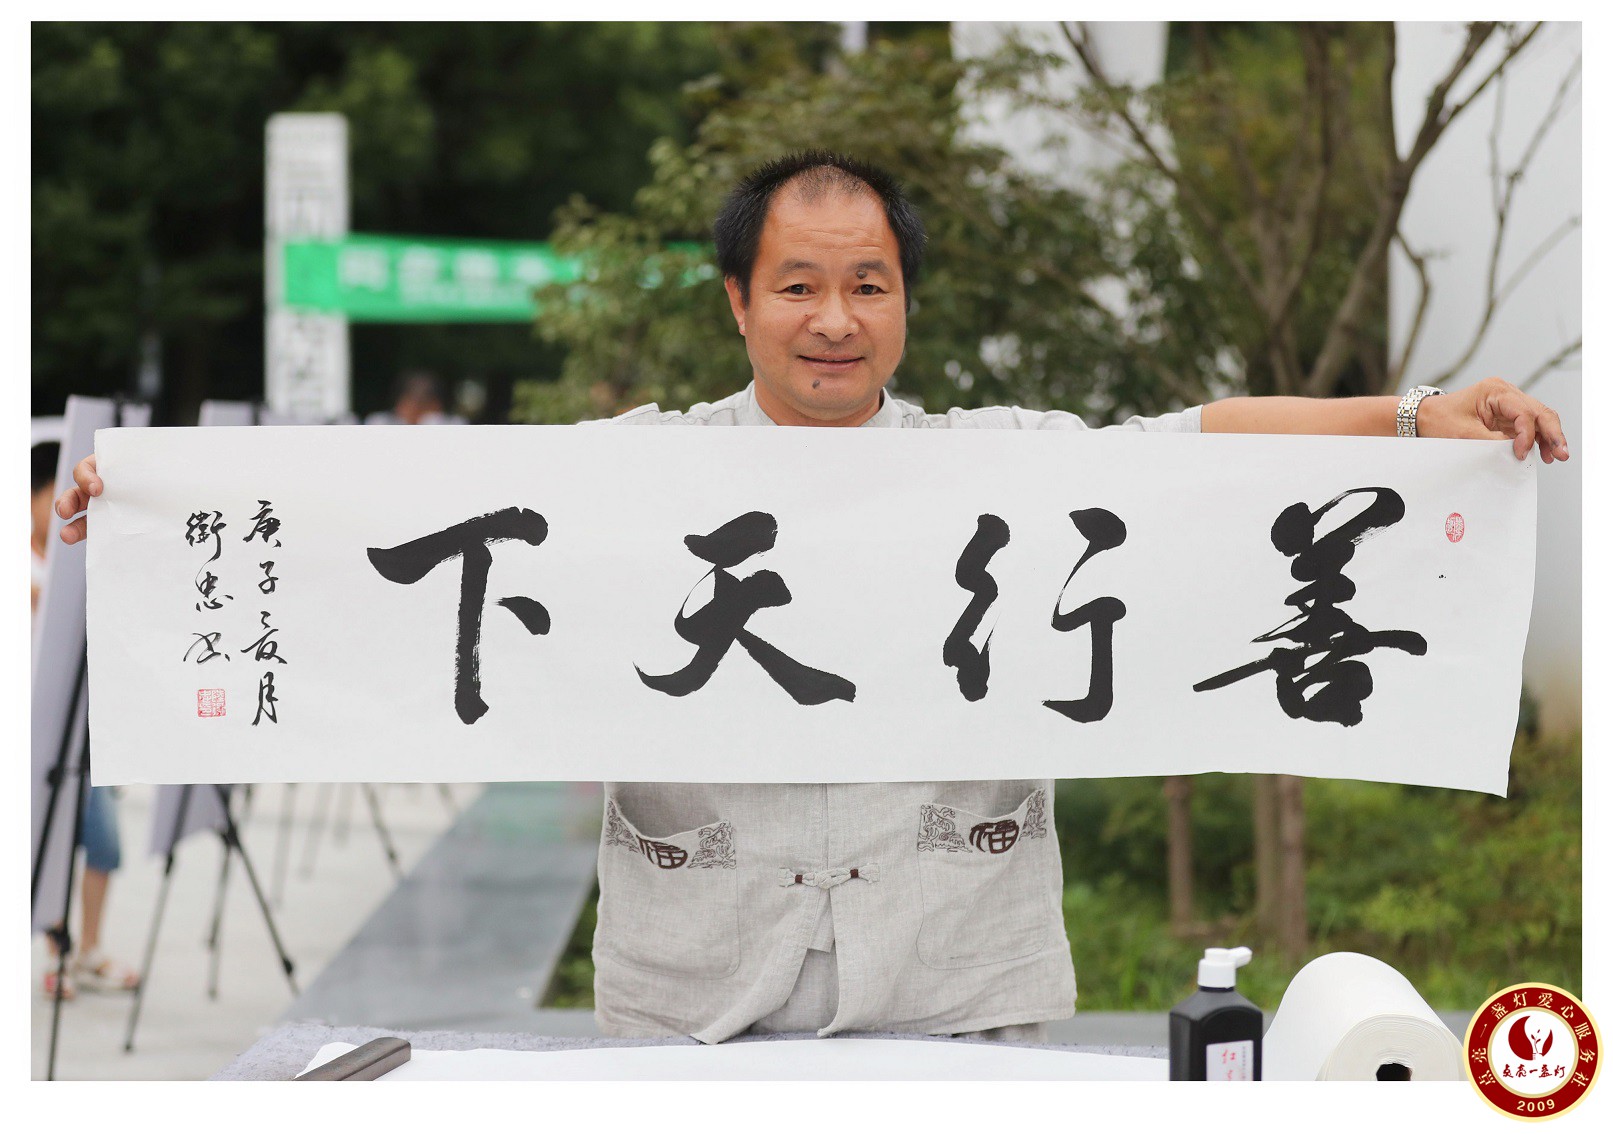 善行天下
庚子夏月
衛忠书
福
福
红
点亮一盏灯爱心服务社
点亮一盏灯
2009